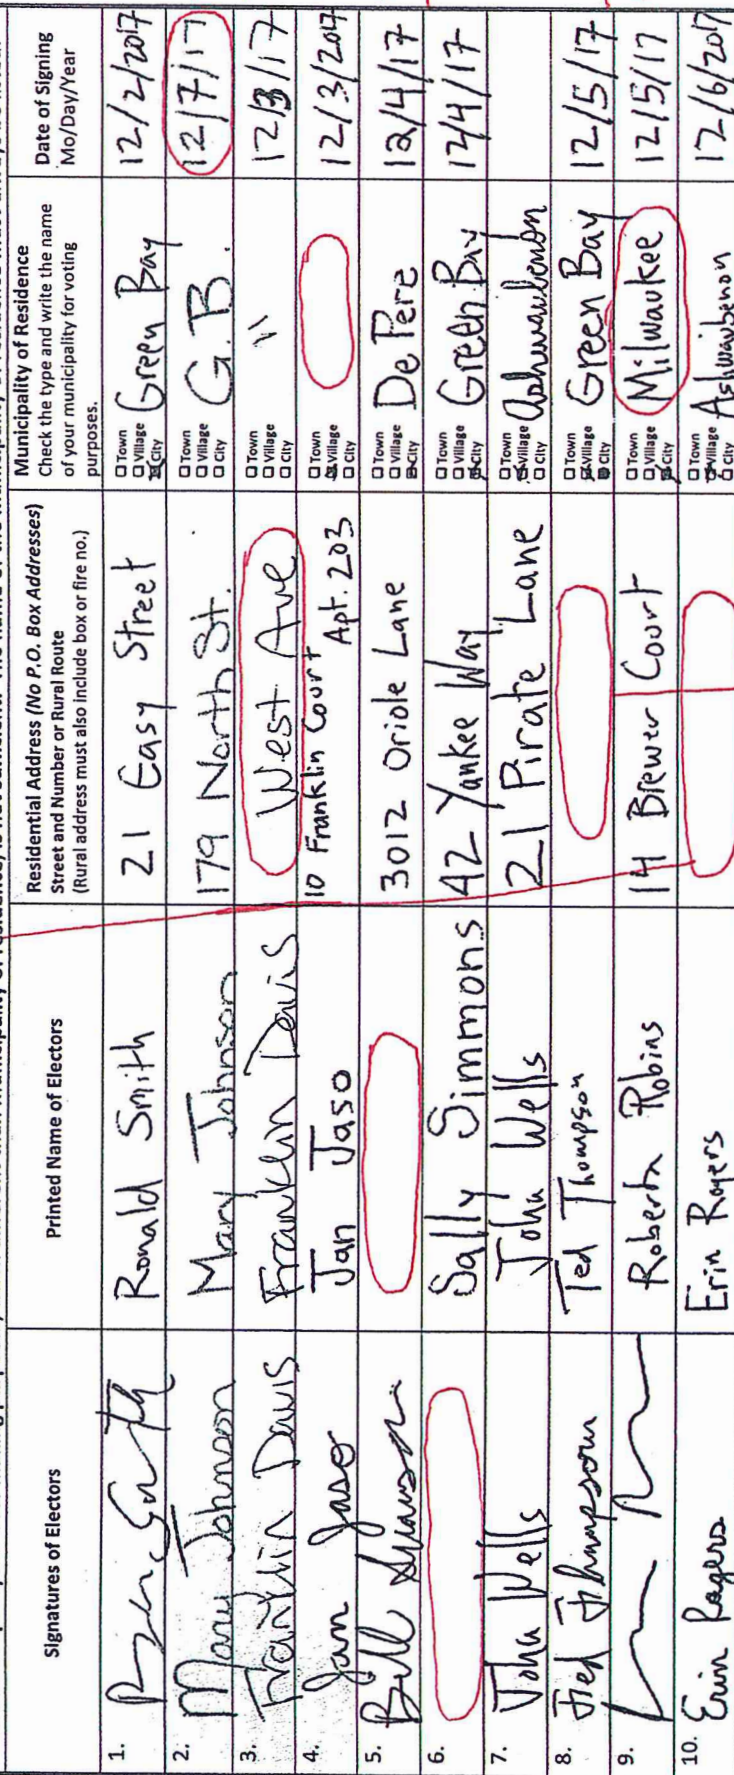 Signatures of Electors
Printed Name of Electors
Residential Address (No P.O. Box Addresses)
Street and Number or Rural Route
(Rural address must also include box or fire no.)
Municipality of Residence
Check the type and write the name
of your municipality for voting
purposes.
Date of Signing
Mo/Day/Year
1. Ronald Smith 21 Easy Street □ Town □ Village □ City Green Bay 12/2/2017
2. Mary Johnson Mary Johnson 179 North St. □ Town □ Village □ City G.B. 12/7/17
3. Franklin Davis Franklin Davis West Ave □ Town □ Village □ City " 12/3/17
4. Jan Jaso Jan Jaso 10 Franklin Court Apt. 203 □ Town □ Village □ City 12/3/2017
5. Bill Swanson 3012 Oriole Lane □ Town □ Village □ City De Pere 12/4/17
6. Sally Simmons 42 Yankee Way □ Town □ Village □ City Green Bay 12/4/17
7. John Wells John Wells 21 Pirate Lane □ Town □ Village □ City Ashwaubenon
8. Ted Thompson Ted Thompson □ Town □ Village □ City Green Bay 12/5/17
9. Roberta Robins 14 Brewer Court □ Town □ Village □ City Milwaukee 12/5/17
10. Erin Rogers Erin Rogers □ Town □ Village □ City Ashwaibenon 12/6/2017